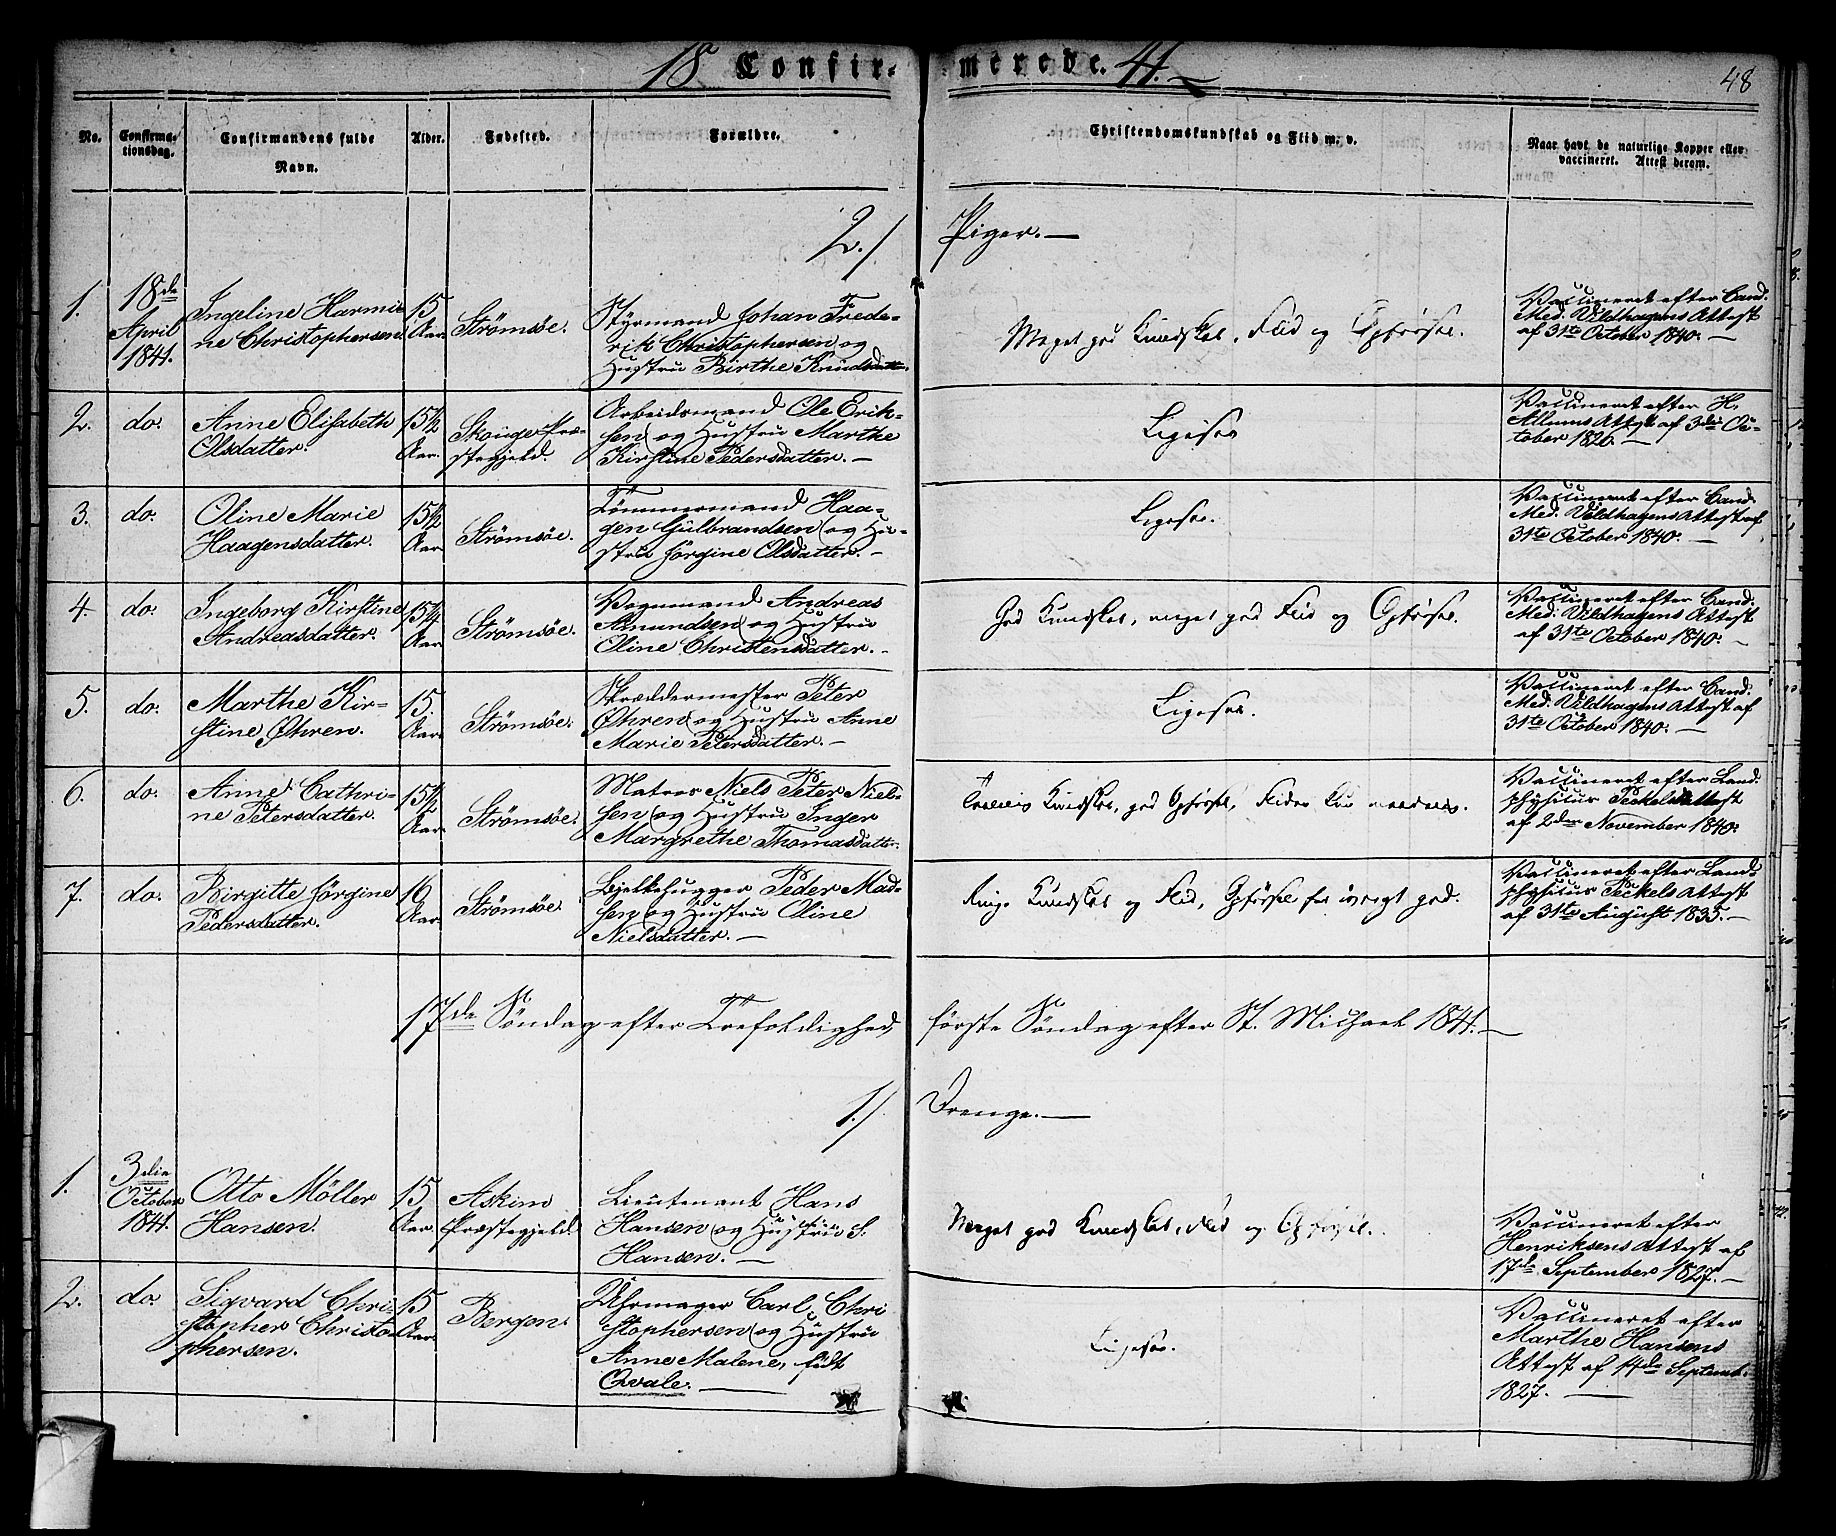 18 Confir- merede. 41.
48
No.
Confirma-
tionsdag.
Confirmandens fulde
Navn.
Alder.
Fødested.
Forældre.
Christendomskundskab og Flid m. v.
Naar havt de naturlige Kopper eller
vaccineret. Attest derom.
2./ Piger.—
1.
18de
April
1841.
Ingeline Harmi-
ne Christophersen
15
Aar.
Strömsöe.
Styrmand Johan Frede-
rik Christophersen og
Hustru Birthe Knudsdatter.
Meget god Kundskab, Flid og Opførsel.
Vaccineret efter Cand.
Med. Vildhagens Attest
af 31te October 1840.—
2.
do.
Anne Elisabeth
Olsdatter.
15½
Aar.
Skouger Præ-
stegjeld.
Arbeidsmand Ole Erik-
sen og Hustru Marthe
Kirstine Pedersdatter.—
Ligesaa
Vaccineret efter H.
Allums Attest af 3die Oc-
tober 1826.—
3.
do.
Oline Marie
Haagensdatter.
15½
Aar.
Strömsöe.
Tömmermand Haa-
gen Gulbrandsen og Hu-
stru Jörgine Olsdatter.—
Ligesaa.
Vaccineret efter Cand.
Med. Vildhagens Attest af
31te October 1840.—
4.
do.
Ingeborg Kirstine
Andreasdatter.
15¼
Aar.
Strömsöe.
Vognmand Andreas
Amundsen og Hustru
Oline Christensdatter.-
God Kundskab, meget god Flid og Opførsel.
Vaccineret efter Cand.
Med. Vildhagens Attest
af 31te October 1840.—
5.
do.
Marthe Kir-
stine Øhren.
15.
Aar.
Strömsöe.
Skræddermester Peter
Øhren og Hustru Anne
Marie Petersdatter.—
Ligesaa.
Vaccineret efter Cand.
Med. Vildhagens Attest af
31te October 1840.—
6.
do.
Anne Cathri-
ne Petersdatter.
15½
Aar.
Strömsöe.
Matros Niels Peter Niel-
sen og Hustru Inger
Margrethe Thomasdatter.
Kundskab, god Opførsel, Fliden kun maadelig.
Vaccineret efter Land-
physicus Peckels Attest
af 2den November 1840.
7.
do.
Birgitte Jörgine
Pedersdatter.
16
Aar.
Strömsöe.
Bjelkehugger Peder Mad-
sen og Hustru Oline
Nielsdatter.—
Ringe Kundskab og Flid, Opførsel for øvrigt god.
Vaccineret efter Land-
physicus Peckels Attest
af 31te August 1835.—
17de Söndag efter Trefoldighed, förste Söndag efter St. Michael 1841.—
1./ Drenge.—
1.
3die
October
1841.
Otto Möller
Hansen.
15
Aar.
Askim
Præstegjeld.
Lieutenant Hans
Hansen og Hustru S.
Hansen.—
Meget god Kundskab, Flid og Opførsel.
Vaccineret efter
Henriksens Attest af
17de September 1827.—
2.
do.
Sigvard Chri-
stopher Christo-
phersen.
15
Aar.
Bergen.
Uhrmager Carl Chri-
stophersen og Hustru
Anne Malene, født
Qvale.—
Ligesaa.
Vaccineret efter
Marthe Hansens
Attest af 14de Septemb.
1827.—